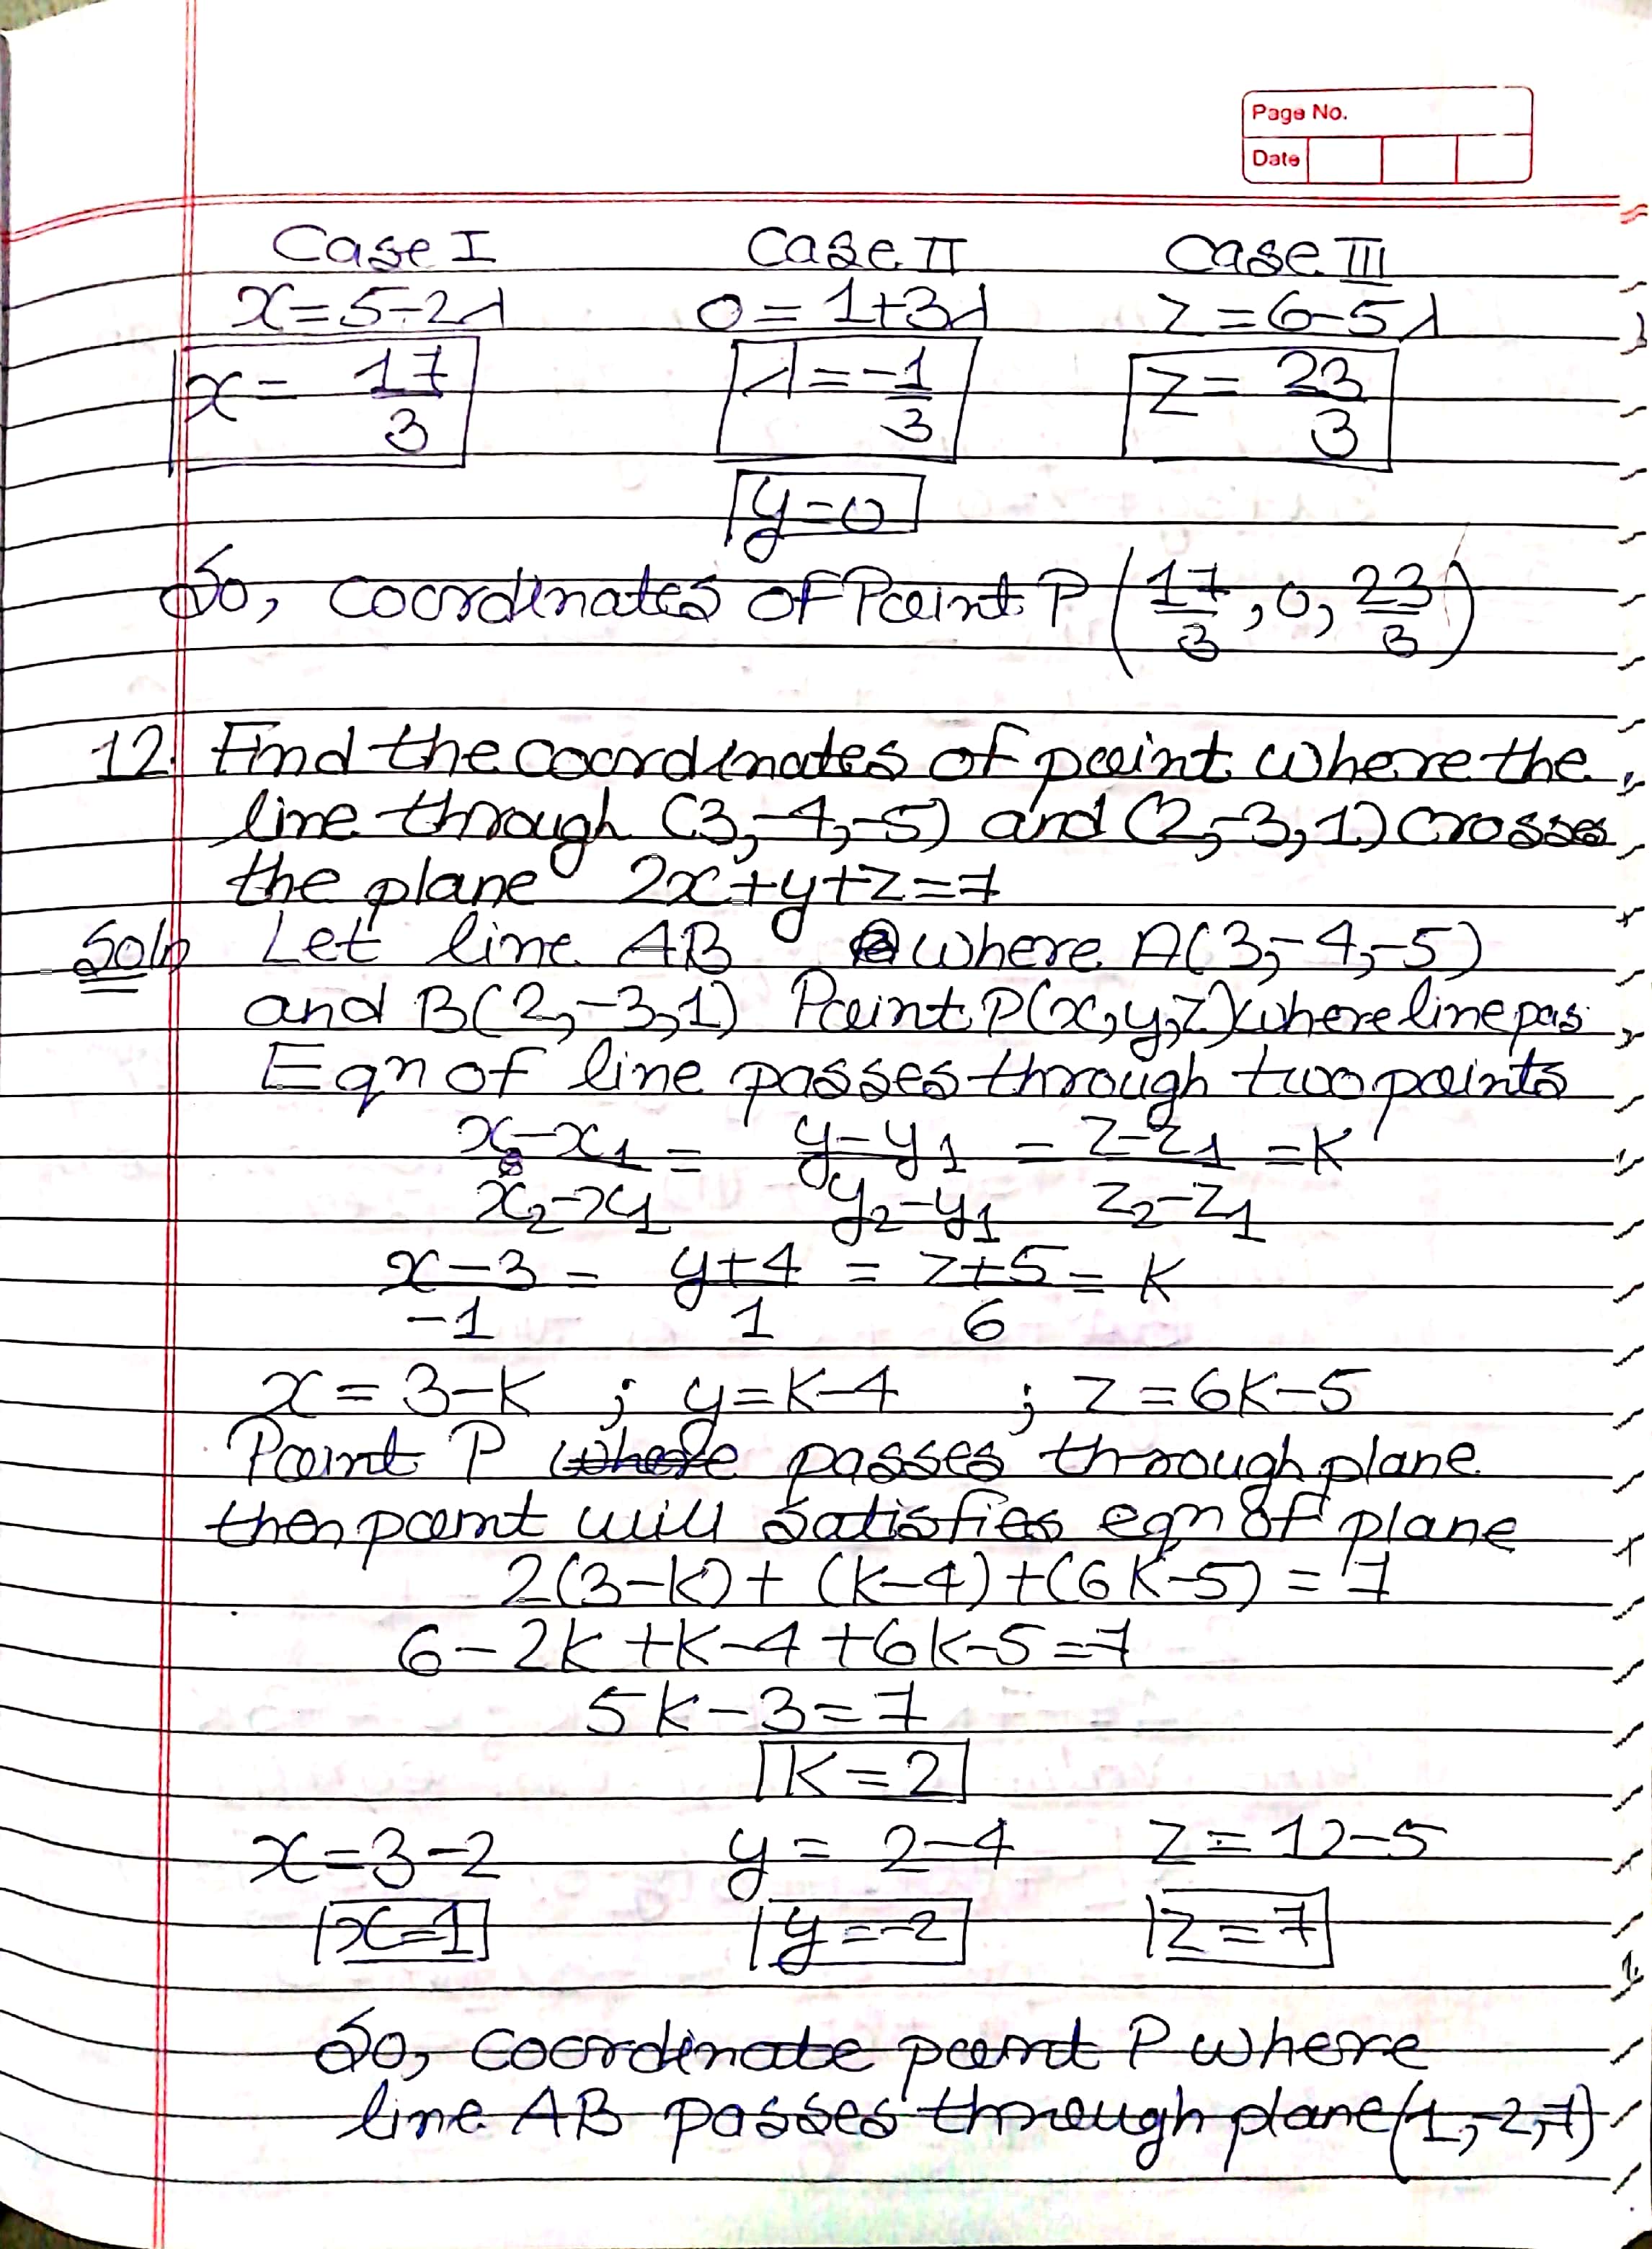 Page No.
Date
Case I Case II Case III
x=5-2λ 0=1+3λ z=6-5λ
x= 17/3 λ=-1/3 z= 23/3
y=0
So, coordinates of Point P (17/3, 0, 23/3)
12. Find the coordinates of point where the
line through (3,-4,-5) and (2,-3,1) crosses
the plane 2x+y+z=7
Soln Let line AB where A(3,-4,-5)
and B(2,-3,1) Point P(x,y,z) where line pas
Eqn of line passes through two points
x-x1/x2-x1 = y-y1/y2-y1 = z-z1/z2-z1 =K
x-3/-1 = y+4/1 = z+5/6 = K
x=3-K ; y=K-4 ; z=6K-5
Point P where passes through plane
then point will satisfies eqn of plane
2(3-K)+(K-4)+(6K-5)=7
6-2K+K-4+6K-5=7
5K-3=7
K=2
x=3-2 y= 2-4 z=12-5
x=1 y=-2 z=7
So, coordinate point P where
line AB passes through plane (1,-2,7)